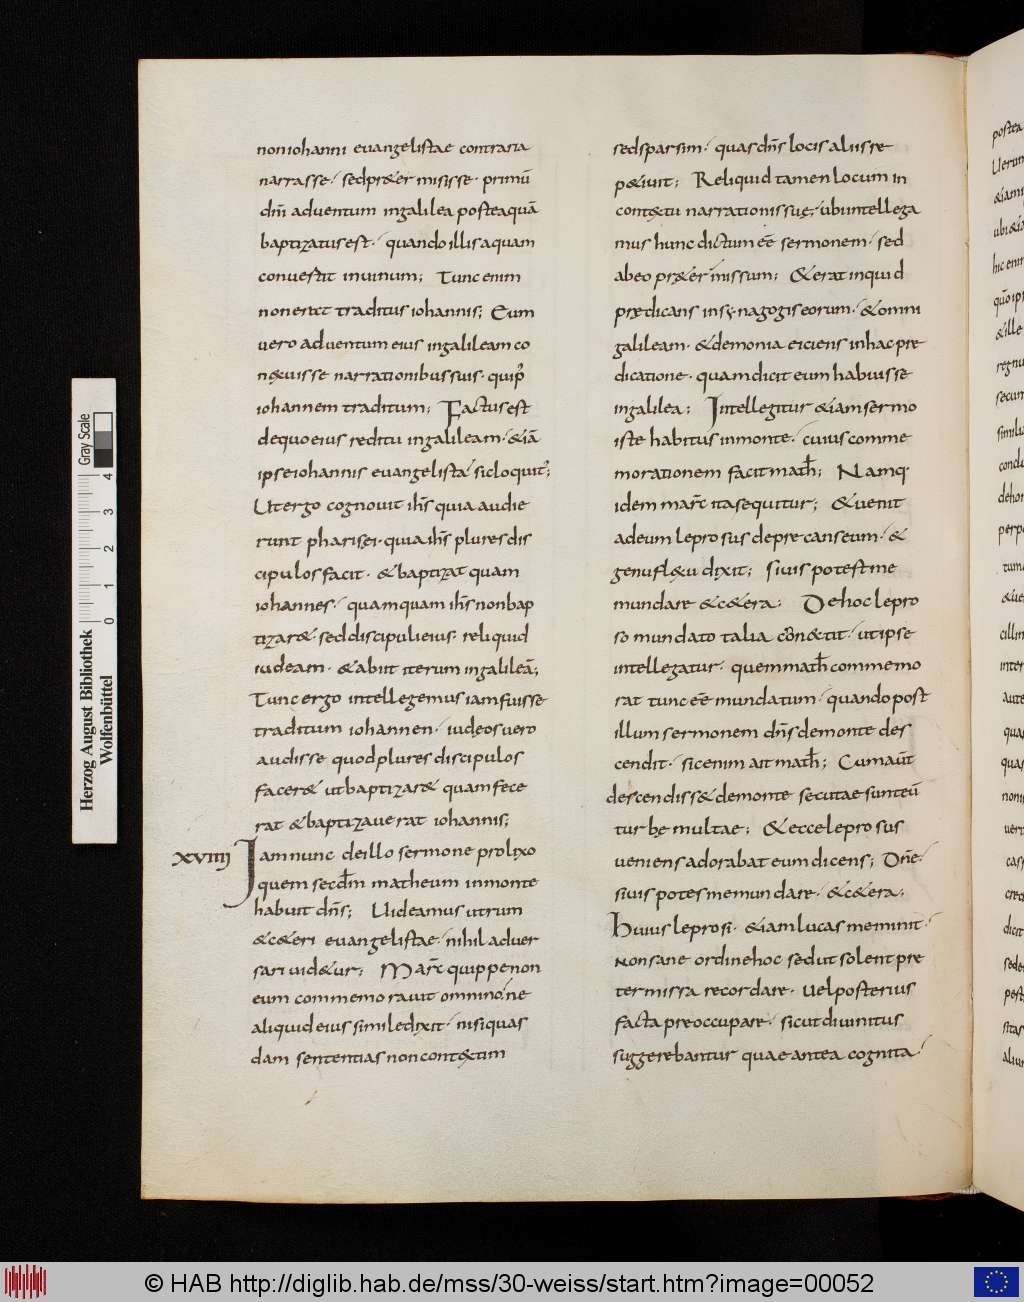 noniohanni euangelistae contraria
narrasse · sedpr&ermisisse · primū
dn̄i aduentum ingalilea posteaquā
baptizatusest · quandoillisaquam
conuertit inuinum; Tunc enim
nonerat traditus iohannis; Eum
uero aduentum eius ingalileam co
n&xuisse narrationibussuis · quip
iohannem traditum; Factusest
dequoeius reditu ingalileam · &iā
ipseiohannis euangelista sicloquit;
Utergo cognouit ih̄s quia audie
runt pharisei · quiaih̄s pluresdis
cipulosfacit · &baptizat quam
iohannes · quamquam ih̄s nonbap
tizar& · seddiscipulieius · reliquid
iudeam · &abiit iterum ingalileā;
Tunc ergo intellegemus iamfuisse
traditum iohannen · iudeosuero
audisse quodplures discipulos
facer& utbaptizar& quamfece
rat &baptizauerat iohannis;
XVIIII Iamnunc deillo sermone prolixo
quem secdm matheum inmonte
habuit dn̄s; Uideamus utrum
&c&eri euangelistae nihil aduer
sari uid&ur; Marc̄ quippenon
eum commemorauit omnino, ne
aliquideius similedixit · nisiquas
dam sententias noncont&xtim
sedsparsim · quasdn̄s locis aliisre
p&iuit; Reliquid tamen locum in
cont&xtu narrationis suę · ubiintellega
mus hunc dictum eē sermonem · sed
abeo pr&ermissum; &erat inquid
prædicans insynagogiseorum · &omni
galileam · &demonia eiciens inhacpre
dicatione · quamdicit eum habuisse
ingalilea; Intellegitur &iamsermo
iste habitus inmonte · cuiuscomme
morationem facit math̄; Namq·
idem marc̄ itasequitur; &uenit
adeum leprosus deprecanseum · &
genufl&xu dixit; siuis potestme
mundare &c&era · Dehoc lepro
so mundato talia con&xtit · utipse
intellegatur · quemmath̄ commemo
rat tunc eē mundatum · quandopost
illum sermonem dn̄s demonte des
cendit · sicenim ait math̄; Cumaūt
descendiss& demonte secutae sunteū
turbe multae; &ecceleprosus
ueniens adorabat eum dicens; Dn̄e ·
siuis potesmemundare · &c&era ·
Huius leprosi · &iamlucas meminit ·
nonsane ordinehoc sedut solent pre
termissa recordare · uelposterius
facta preoccupare · sicutdiuinitus
suggerebantur quaeantea cognita ·
postea
Uerum
&iami
hic enim
&ille
regnu
secum
similia
condu
dehor
perpe
tuma
&ue
cillim
inter
aute
qua
quas
noni
uera
cass
cred
dicit
sede
pest
sitas
alium
Herzog August Bibliothek
Wolfenbüttel
0 1 2 3 4
Gray Scale
© HAB http://diglib.hab.de/mss/30-weiss/start.htm?image=00052